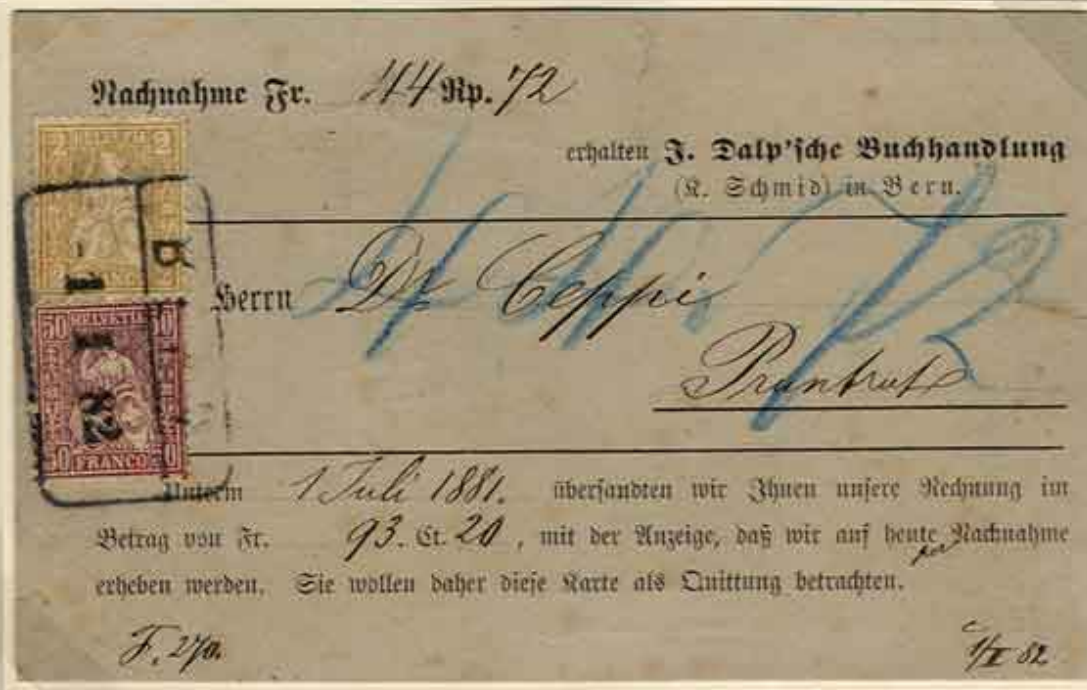 Nachnahme Fr. 44 Rp. 72
erhalten J. Dalp'sche Buchhandlung
(K. Schmid) in Bern.
44 72
Herrn Dr Ceppi
Pruntrut
Unterm 1 Juli 1881. übersandten wir Ihnen unsere Rechnung im
Betrag von Fr. 93. Ct. 20, mit der Anzeige, daß wir auf heute Nachnahme
erheben werden. Sie wollen daher diese Karte als Quittung betrachten.
2 2
-1 I 82
50 HELVETIA 50
50 FRANCO 0